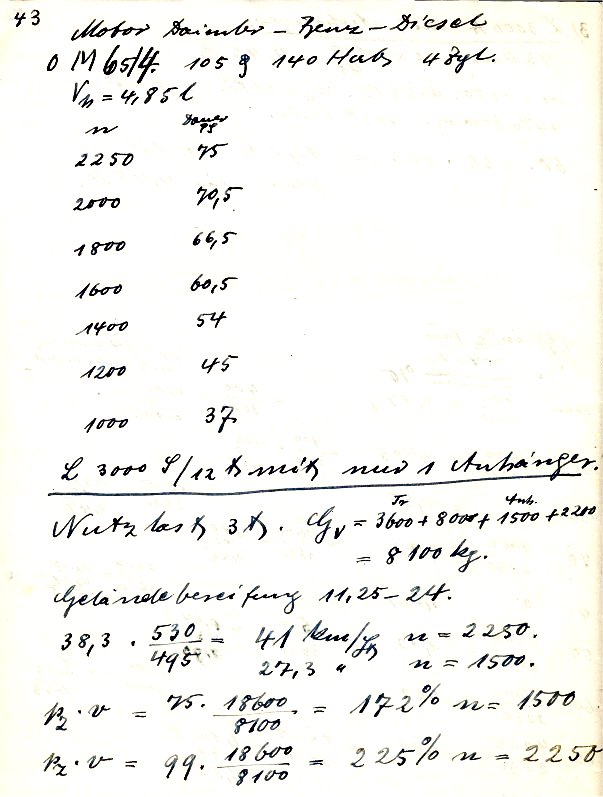 43
Motor Daimler-Benz-Diesel
OM 65/4. 105 ∅ 140 Hub 4 Zyl.
Vh = 4,85 l
n Dauer PS
2250 75
2000 70,5
1800 66,5
1600 60,5
1400 54
1200 45
1000 37
L 3000 S/12 t mit nur 1 Anhänger.
Nutzlast 3 t. Gv = 3600 + 800 + 1500 + 2200
= 8100 kg.
Geländebereifung 11,25-24.
38,3 · 530/495 = 41 km/St n = 2250.
27,3 " n = 1500.
pz · v = 75 · 18600/8100 = 172% n = 1500
pz · v = 99 · 18600/8100 = 225% n = 2250